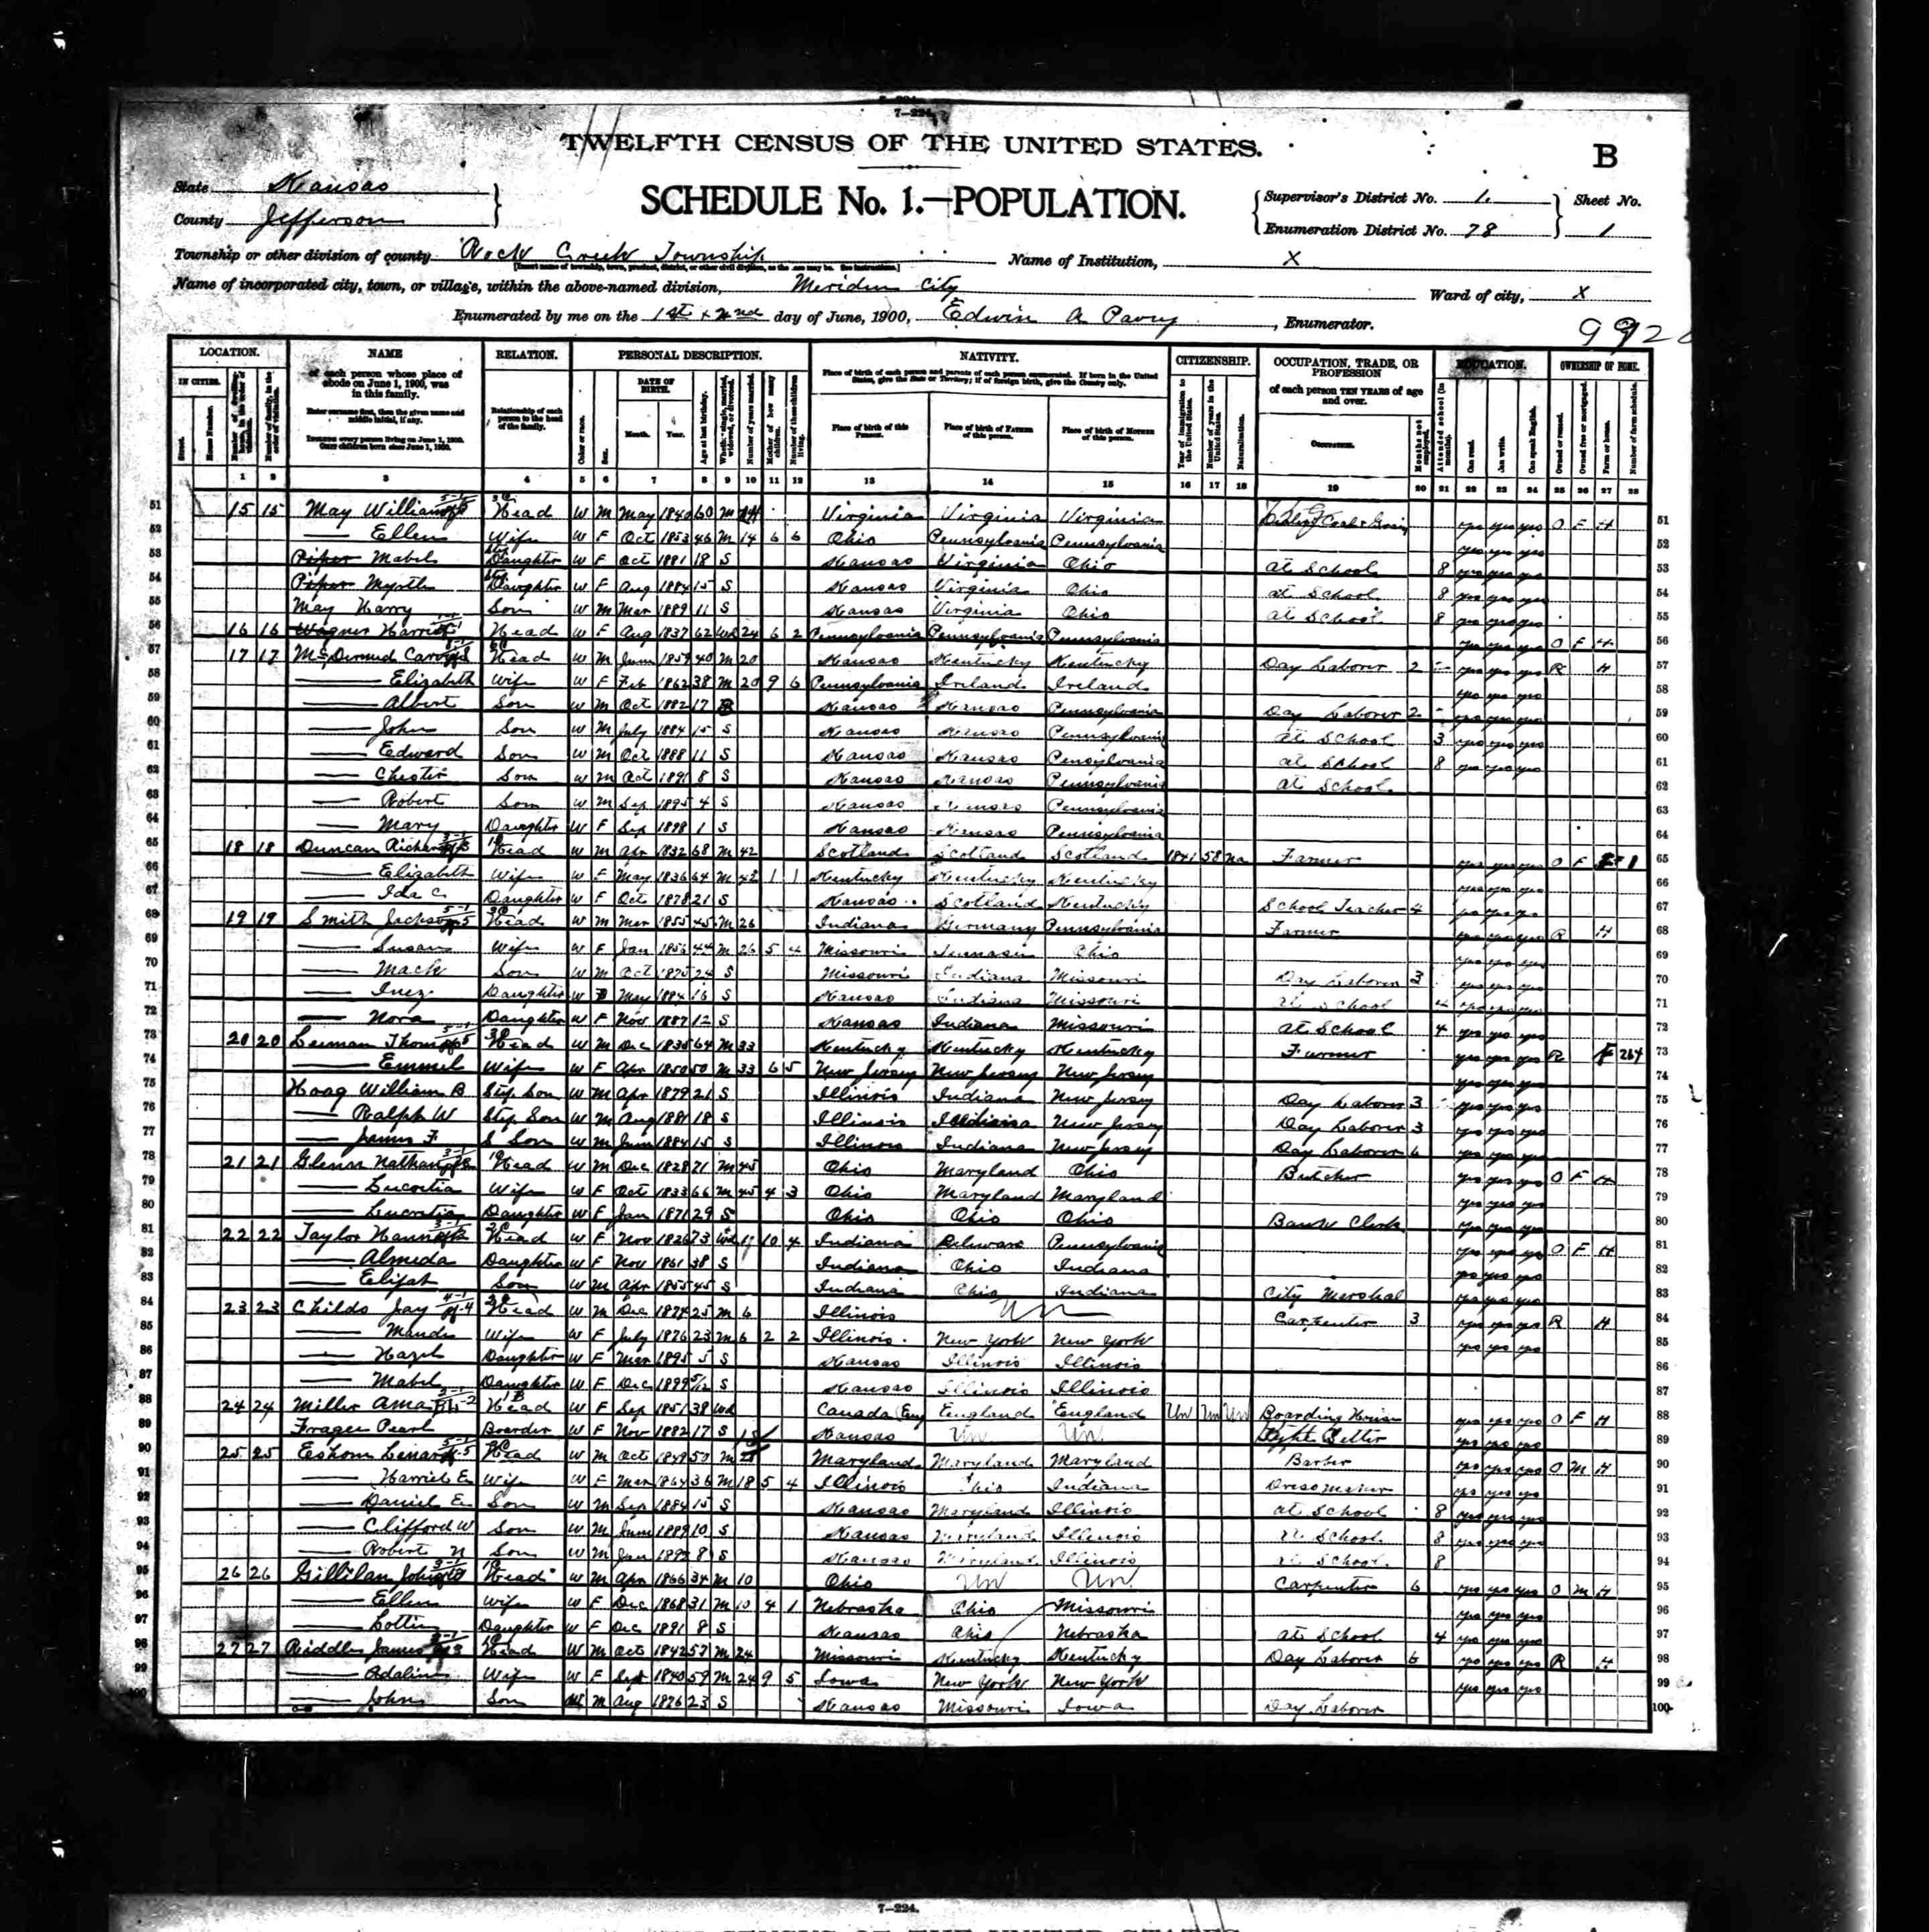 7-224
TWELFTH CENSUS OF THE UNITED STATES.
B
State Kansas
County Jefferson
SCHEDULE No. 1.—POPULATION.
Supervisor's District No. 1.
Enumeration District No. 78
Sheet No.
1
Township or other division of county Rock Creek Township
Name of Institution, X
Name of incorporated city, town, or village, within the above-named division, Meriden City
Ward of city, X
Enumerated by me on the 1st + 2nd day of June, 1900, Edwin A , Enumerator.
LOCATION. NAME RELATION. PERSONAL DESCRIPTION. NATIVITY. CITIZENSHIP. OCCUPATION, TRADE, OR PROFESSION EDUCATION. OWNERSHIP OF HOME.
IN CITIES. of each person whose place of abode on June 1, 1900, was in this family. Relationship of each person to the head of the family. DATE OF BIRTH. Place of birth of each person and parents of each person enumerated. If born in the United States, give the State or Territory; if of foreign birth, give the Country only. of each person TEN YEARS of age and over.
Enter surname first, then the given name and middle initial, if any.
INCLUDE every person living on June 1, 1900. OMIT children born since June 1, 1900.
Street. House Number. Color or race. Sex. Month. Year. Age at last birthday. Place of birth of this PERSON. Place of birth of FATHER of this person. Place of birth of MOTHER of this person. Naturalization. OCCUPATION. Can read. Can write. Can speak English. Owned or rented. Owned free or mortgaged. Farm or house. Number of farm schedule.
1 2 3 4 5 6 7 8 9 10 11 12 13 14 15 16 17 18 19 20 21 22 23 24 25 26 27 28
51 15 15 May William Head W M May 1840 60 M Virginia Virginia Virginia Coal + Grain yes yes yes O F H 51
52 Ellen Wife W F Oct 1853 46 M 14 6 6 Ohio Pennsylvania Pennsylvania yes yes yes 52
53 Piper Mabel Daughter W F Oct 1881 18 S Kansas Virginia Ohio at School 8 yes yes yes 53
54 Piper Myrtle Daughter W F Aug 1884 15 S Kansas Virginia Ohio at School 8 yes yes yes 54
55 May Harry Son W M Mar 1889 11 S Kansas Virginia Ohio at School 8 yes yes yes 55
56 16 16 Wagner Harriet Head W F Aug 1837 62 Wd 24 6 2 Pennsylvania Pennsylvania Pennsylvania yes yes yes O F H 56
57 17 17 Head W M June 1859 40 M 20 Kansas Kentucky Kentucky Day Laborer 2 yes yes yes R H 57
58 Elizabeth Wife W F Feb 1862 38 M 20 9 6 Pennsylvania Ireland Ireland yes yes yes 58
59 Albert Son W M Oct 1882 17 Kansas Kansas Pennsylvania Day Laborer 2 yes yes yes 59
60 John Son W M July 1884 15 S Kansas Kansas Pennsylvania at School 3 yes yes yes 60
61 Edward Son W M Oct 1888 11 S Kansas Kansas Pensylvania at School 8 yes yes yes 61
62 Chester Son W M Oct 1891 8 S Kansas Kansas Pennsylvania at School 62
63 Robert Son W M Sep 1895 4 S Kansas Kansas Pennsylvania 63
64 Mary Daughter W F Sep 1898 1 S Kansas Kansas Pennsylvania 64
65 18 18 Duncan Richard Head W M Apr 1832 68 M 42 Scotland Scotland Scotland 1841 58 Na Farmer yes yes yes O F 1 65
66 Elizabeth Wife W F May 1836 64 M 42 1 1 Kentucky Kentucky Kentucky yes yes yes 66
67 Ida C. Daughter W F Oct 1878 21 S Kansas Scotland Kentucky School Teacher 4 yes yes yes 67
68 19 19 Smith Jackson Head W M Mar 1855 45 M 26 Indiana Germany Pennsylvania Farmer yes yes yes R H 68
69 Susan Wife W F Jan 1856 44 M 26 5 4 Missouri Ohio yes yes yes 69
70 Mack Son W M Oct 1875 24 S Missouri Indiana Missouri Day Laborer 3 yes yes yes 70
71 Inez Daughter W May 1884 16 S Kansas Indiana Missouri at School 4 yes yes yes 71
72 Nora Daughter W F Nov 1887 12 S Kansas Indiana Missouri at School 4 yes yes yes 72
73 20 20 Thomas Head W M Dec 1835 64 M 33 Kentucky Kentucky Kentucky Farmer yes yes yes R F 264 73
74 Emmel Wife W F Apr 1850 50 M 33 6 5 New Jersey New Jersey New Jersey yes yes yes 74
75 Hoag William B Step Son W M Apr 1879 21 S Illinois Indiana New Jersey Day Laborer 3 yes yes yes 75
76 Ralph W Step Son W M Aug 1881 18 S Illinois Indiana New Jersey Day Laborer 3 yes yes yes 76
77 James F S Son W M June 1884 15 S Illinois Indiana New Jersey Day Laborer 6 yes yes yes 77
78 21 21 Glenn Nathan Head W M Dec 1828 71 M 45 Ohio Maryland Ohio Butcher yes yes yes O F H 78
79 Lucretia Wife W F Oct 1833 66 M 45 4 3 Ohio Maryland Maryland yes yes yes 79
80 Lucretia Daughter W F Jan 1871 29 S Ohio Ohio Ohio Bank Clerk yes yes yes 80
81 22 22 Taylor Hannah Head W F Nov 1826 73 Wd 10 4 Indiana Delaware Pennsylvania yes yes yes O F H 81
82 Almeda Daughter W F Nov 1861 38 S Indiana Ohio Indiana yes yes yes 82
83 Elijah Son W M Apr 1855 45 S Indiana Ohio Indiana City Marshal yes yes yes 83
84 23 23 Childs Jay Head W M Dec 1874 25 M 6 Illinois Un Carpenter 3 yes yes yes R H 84
85 Maude Wife W F July 1876 23 M 6 2 2 Illinois New York New York yes yes yes 85
86 Hazel Daughter W F Mar 1895 5 S Kansas Illinois Illinois 86
87 Mabel Daughter W F Dec 1899 5/12 S Kansas Illinois Illinois 87
88 24 24 Miller Head W F Sep 1851 38 Wd Canada Eng England England Un Un Un Boarding House yes yes yes O F H 88
89 Pearl Boarder W F Nov 1882 17 S Kansas Un Un Type Setter yes yes yes 89
90 25 25 Eshom Head W M Oct 1849 50 M Maryland Maryland Maryland Barber yes yes yes O M H 90
91 Harriet E Wife W F Mar 1864 36 M 18 5 4 Illinois Ohio Indiana Dressmaker yes yes yes 91
92 Daniel E Son W M Sep 1884 15 S Kansas Maryland Illinois at School 8 yes yes yes 92
93 Clifford W Son W M June 1889 10 S Kansas Maryland Illinois at School 8 yes yes yes 93
94 Robert N Son W M Jan 1892 8 S Kansas Maryland Illinois at School 8 94
95 26 26 Gillilan John Head W M Apr 1866 34 M 10 Ohio Un Un Carpenter 6 yes yes yes O M H 95
96 Ellen Wife W F Dec 1868 31 M 10 4 1 Nebraska Ohio Missouri yes yes yes 96
97 Lottie Daughter W F Dec 1891 8 S Kansas Ohio Nebraska at School 4 yes yes yes 97
98 27 27 Riddle James Head W M Oct 1842 57 M 24 Missouri Kentucky Kentucky Day Laborer 6 yes yes yes R H 98
99 Adaline Wife W F Sept 1840 59 M 24 9 5 Iowa New York New York yes yes yes 99
100 John Son M Aug 1876 23 S Kansas Missouri Iowa Day Laborer 100
7—224.